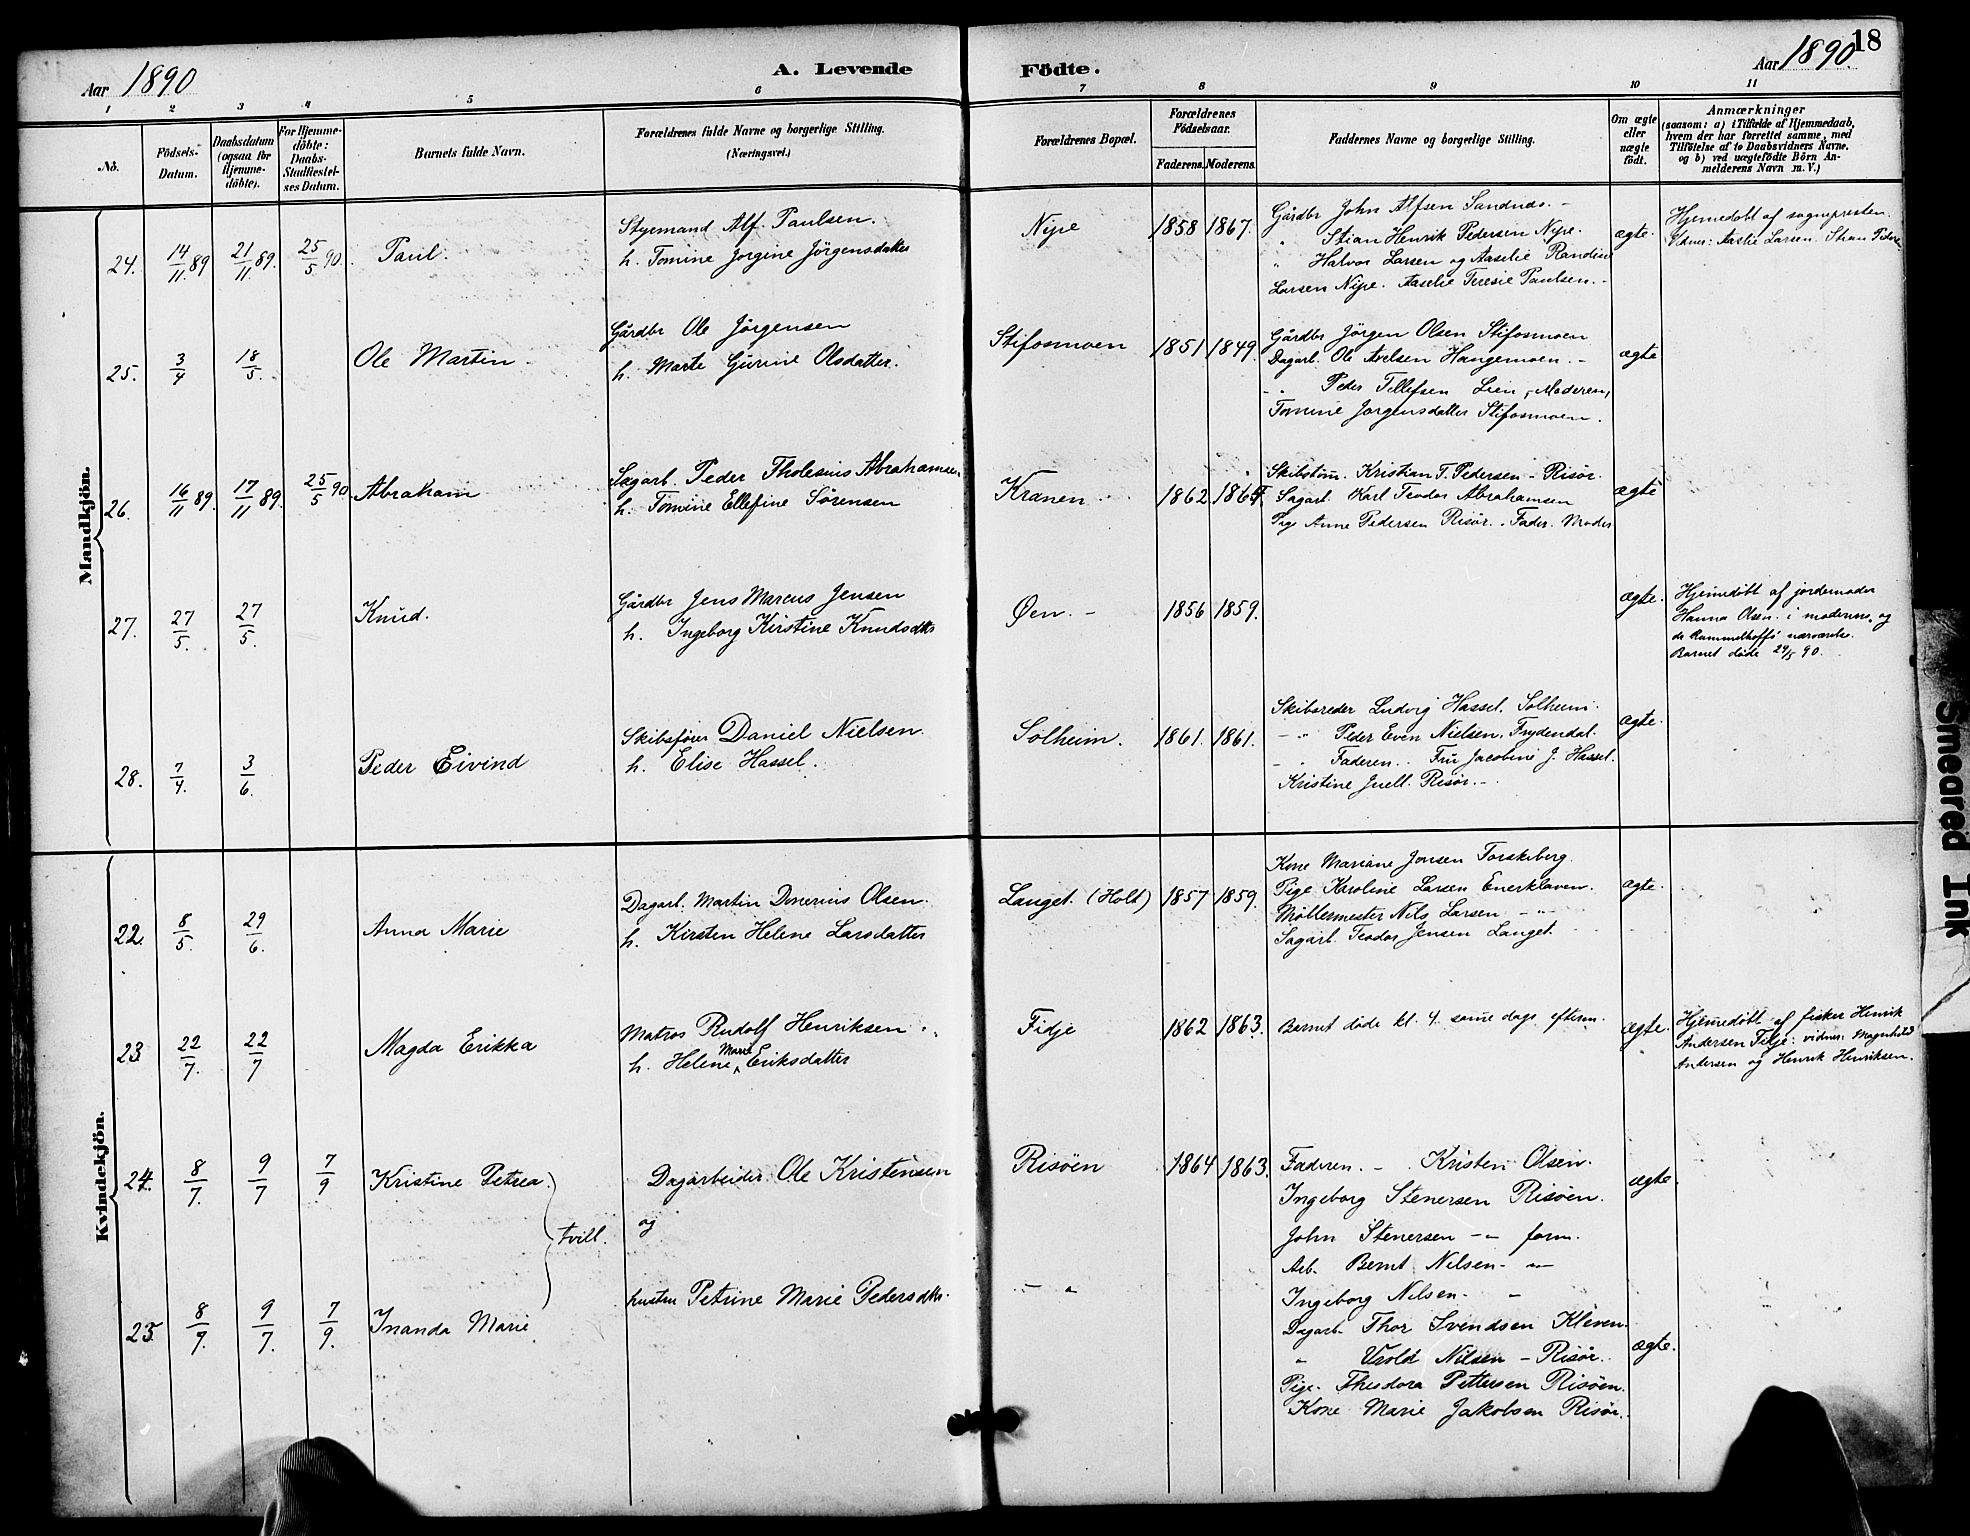 Aar 1890
A. Levende Födte.
Aar 1890
18
1 2 3 4 5 6 7 8 9 10 11
No.
Födsels-Datum.
Daabsdatum (ogsaa for Hjemme-döbte).
For Hjemme-döbte: Daabs-Stadfæstel-ses Datum.
Barnets fulde Navn.
Forældrenes fulde Navne og borgerlige Stilling.
(Næringsvei.)
Forældrenes Bopæl.
Forældrenes Födselsaar.
Faderens. Moderens.
Faddernes Navne og borgerlige Stilling.
Om ægte eller uægte födt.
Anmærkninger
(saasom: a) i Tilfælde af Hjemmedaab,
hvem der har forrettet samme, med
Tilföielse af to Daabsvidners Navne,
og b) ved uægtefödte Börn An-
melderens Navn m. V.)
Mandkjön.
24. 14/11 89 21/11 89. 25/5 90. Paul.
Styrmand Alf. Paulsen.
h. Tomine Jorgine Jörgensdatter
Nipe 1858 1867.
Gårdbr John Alfsen Sandnes. -
" Stian Henrik Pedersen Nipe.
" Halvor Larsen og Aaselie Randine
Larsen Nipe. Aaselie Teresie Paulsen. -
ægte.
Hjemmedøbt af sognepresten.
Vidner: Aaslie Larsen. Stian Peders
25. 3/4 18/5. Ole Martin.
Gårdbr Ole Jörgensen
h. Marte Gurine Olsdatter.
Stifosmoen 1851 1849.
Gårdbr Jörgen Olsen Stifosmoen
Dagarb. Ole Axelsen Hangemoen. -
- " Peder Tellefsen Lien, Moderen,
Tomine Jorgensdatter Stifosmoen.
ægte
26. 16/11 89. 17/11 89. 25/5 90 Abraham
Sagarb. Peder Tholesius Abrahamsen
h. Tomine Ellefine Sørensen
Kranen 1862
Skibstøm. Kristian T. Pedersen - Risör.
Sagarb. Karl Teodor Abrahamsen
Pige Anne Pedersen Risør. Fader. Moder
ægte
27. 27/5. 27/5. Knud.
Gårdbr Jens Marcus Jensen
h. Ingeborg Kirstine Knudsdtr
Øen. - 1856 1859.
ægte.
Hjemmedøbt af jordemoder
Hanna Olsen i moderens og
de nærværelse.
Barnet døde 29/5 90.
28. 7/4. 3/6. Peder Eivind
Skibsfører Daniel Nielsen.
h. Elise Hassel.
Solheim. 1861. 1861.
Skibsreder Ludvig Hassel. Solheim.
- " Peder Even Nielsen, Frydendal.
- " Faderen. Fru Jacobine J. Hassel.
Kristine Juell. Risør. -
ægte.
Kvindekjön.
22. 8/5. 29/6. Anna Marie
Dagarb. Martin Donerius Olsen.
h. Kirsten Helene Larsdatter
Langet. (Holt) 1857 1859.
Kone Mariane Jonsen Torskeberg.
Pige Karoline Larsen Enerklaven.
Møllermester Nils Larsen - " -
Sagarb. Teodor Jensen Langet.
ægte.
23 22/7. 22/7 Magda Erikka
Matros Rudolf Henriksen.
h. Helene Marie Eriksdatter
Fidje 1862 1863.
Barnet døde kl. 4 samme dags efterm.
ægte.
Hjemmedøbt af fisker Henrik
Andersen Fidje: vidner: Magnhild
Andersen og Henrik Henriksen.
24. 8/7. 9/7 7/9 Kristine Petrea.
tvill.
Dagarbeider. Ole Kristensen
og
hustru Petrine Marie Pedersdtr.
Risöen 1864 1863.
Faderen. - Kristen Olsen.
Ingeborg Stenersen Risöen.
John Stenersen - " form.
Arb. Bernt Nilsen - " -
Ingeborg Nilsen - "
ægte.
25. 8/7. 9/7. 7/9. Inanda Marie
- "
Dagarb. Thor Svendsen Kleven.
" Vrold Nilsen - Risør.
Pige. Theodora Pettersen Risöen.
Kone Marie Jakobsen Risør.
ægte.
Smeared Ink